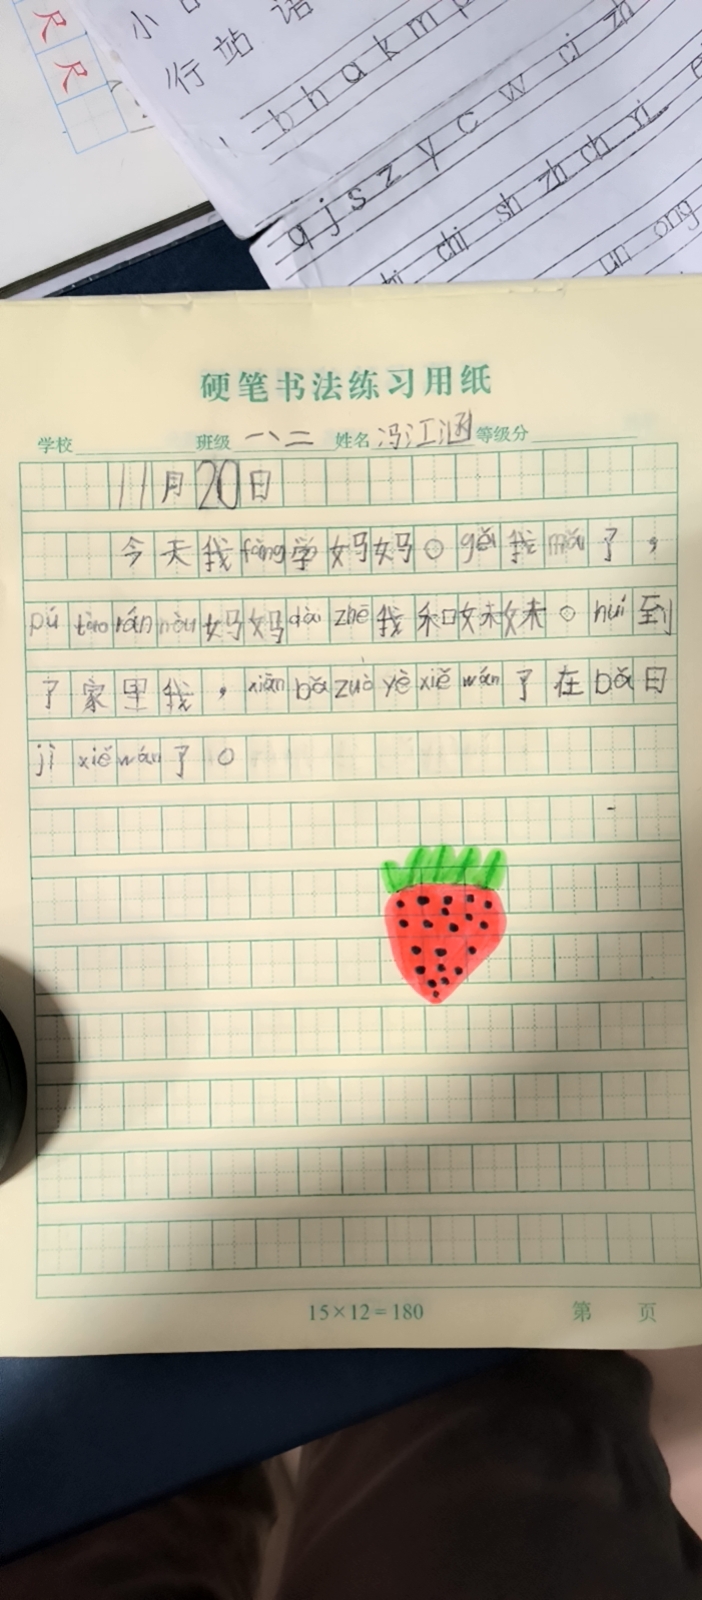 尺
尺
小
行 站 语
b h a k m p
q j s z y c w ci zh
chi sh zh ch ri
un ong
硬笔书法练习用纸
学校 班级 一、二 姓名 冯江涵 等级分
11月20日
今天我fàng学妈妈。gěi我mǎi了，
pú táo rán hòu妈妈dài zhe我和妹妹。huí到
了家里我，xiān bǎ zuò yè xiě wán了在bǎ日
jì xiě wán了。
15×12=180 第 页